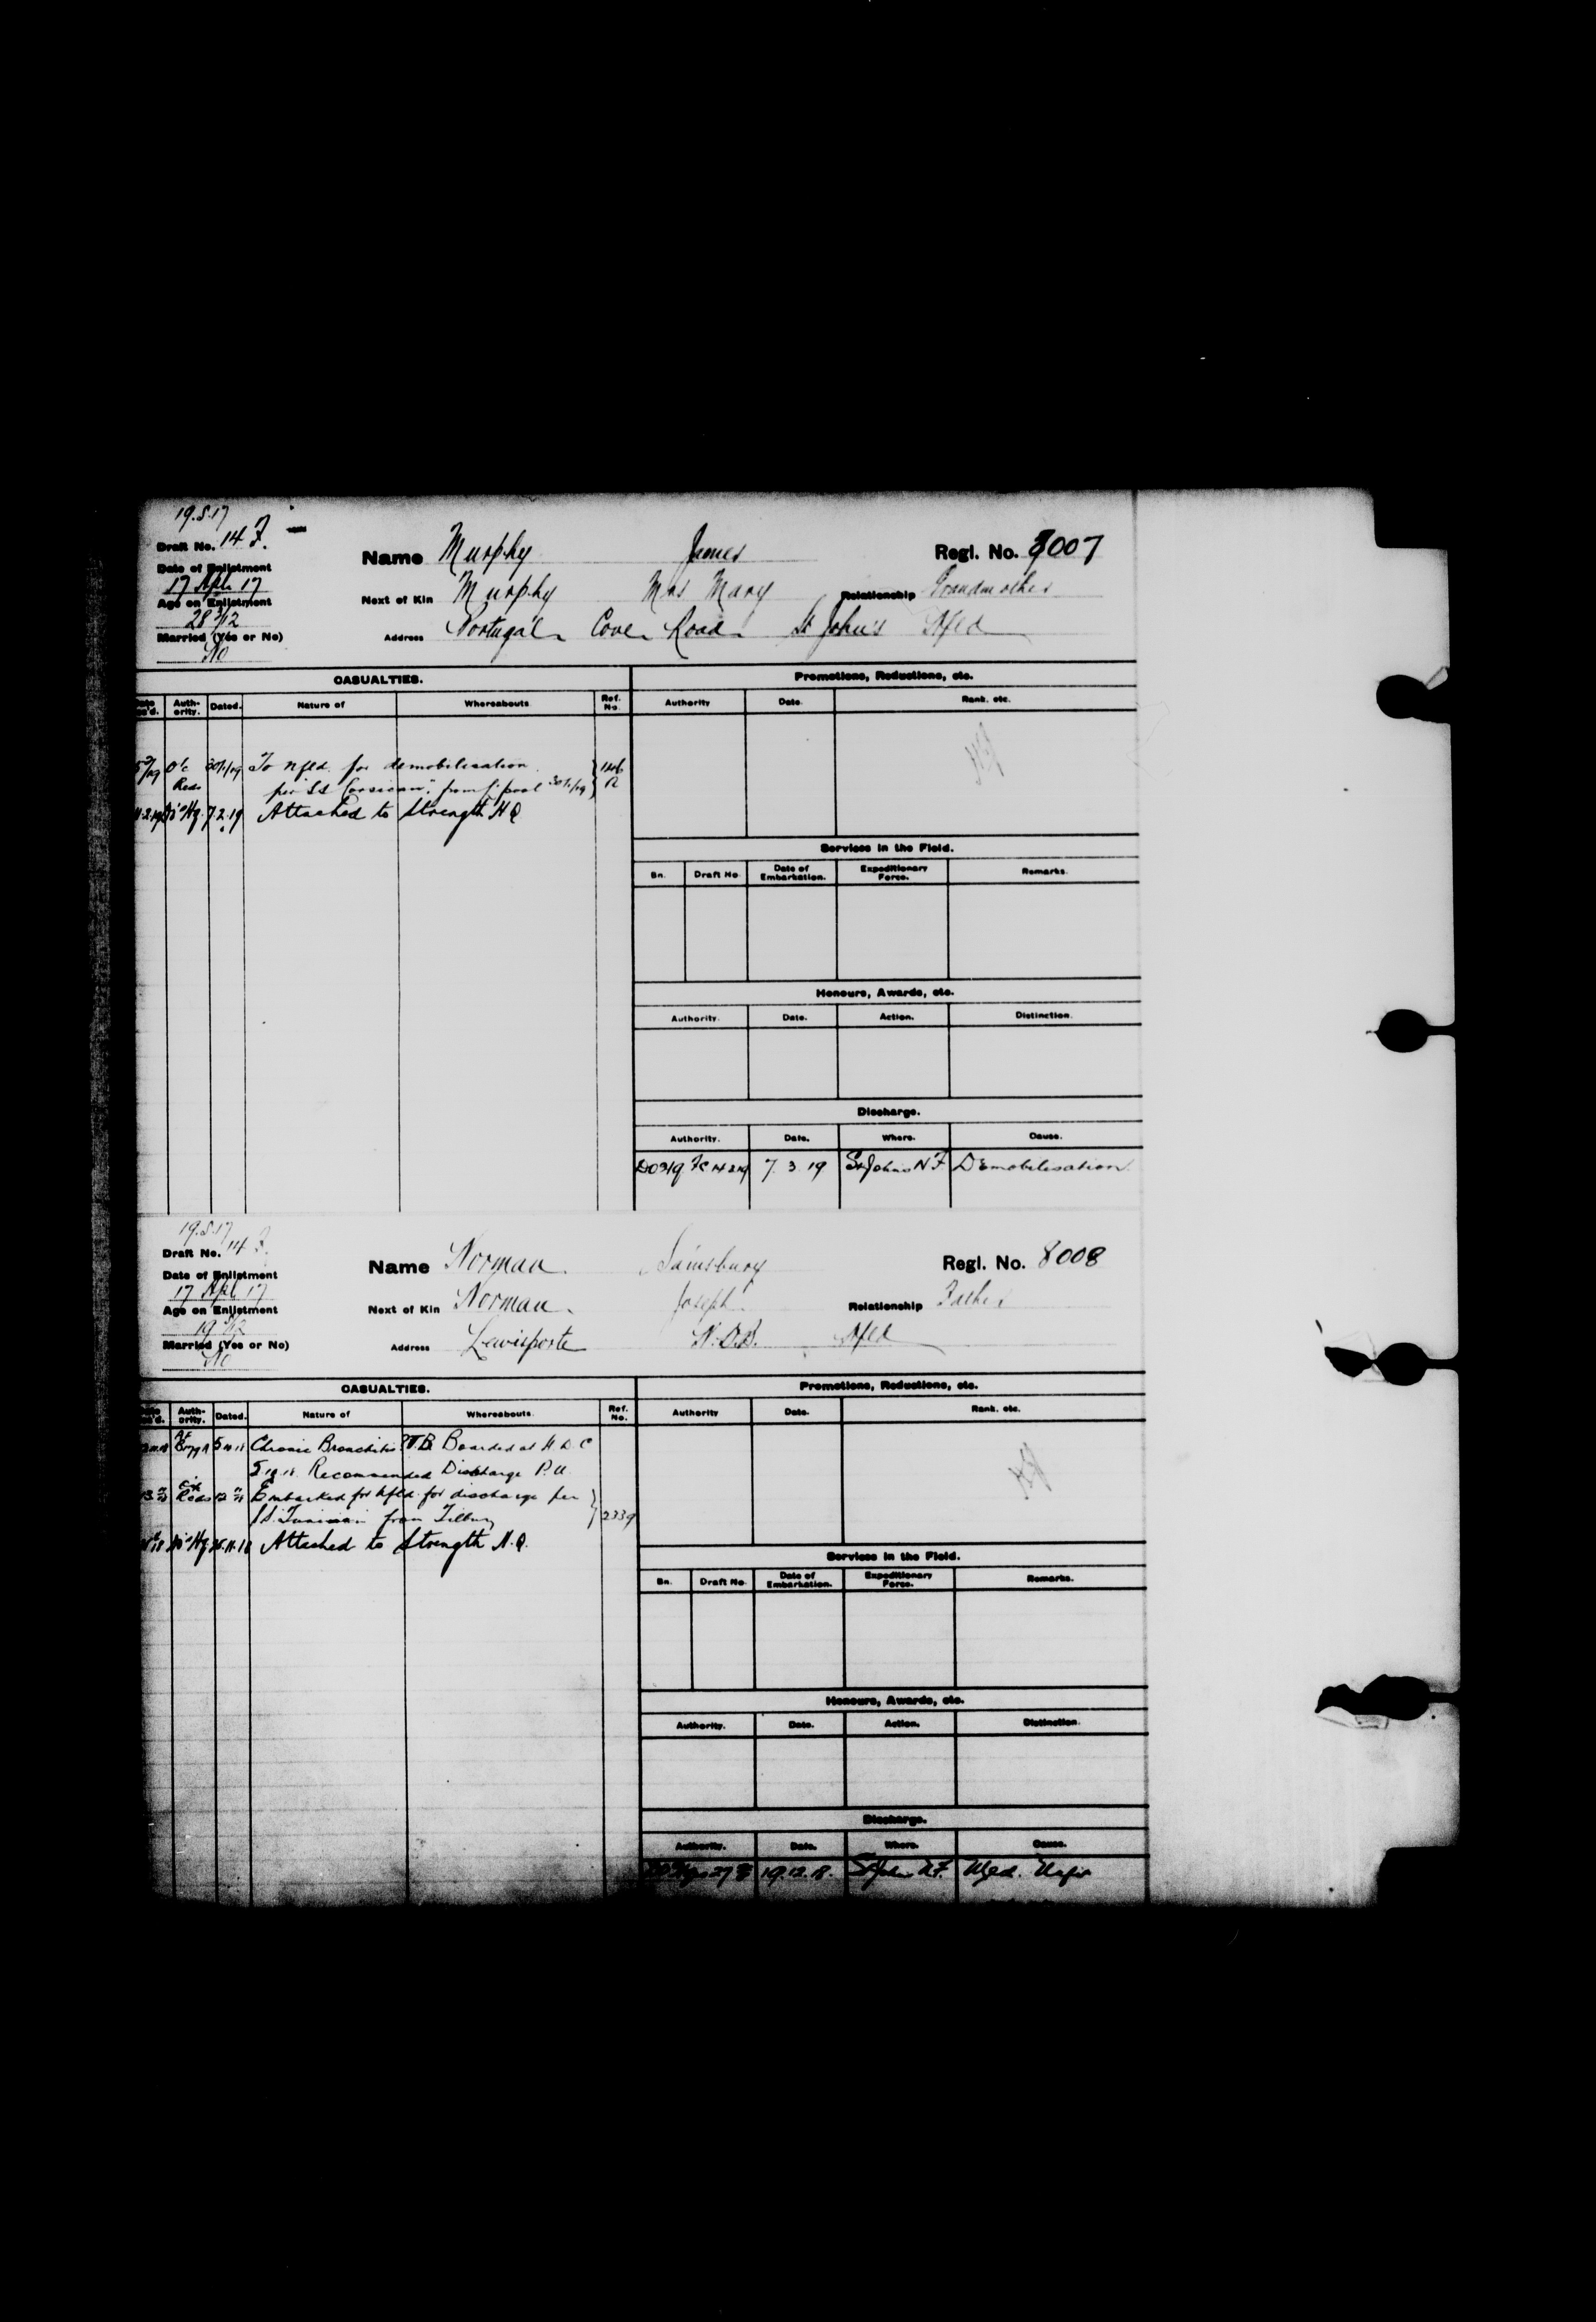 19.5.17
Draft No. 14 F.
Name Murphy James Regl. No. 8007
Date of Enlistment
17 Apl. 17
Next of Kin Murphy Mrs Mary Relationship Grandmother
Age on Enlistment
28 3/12
Address Portugal Cove Road St John's Nfld
Married (Yes or No)
No
CASUALTIES. Promotions, Reductions, etc.
Auth-ority. Dated. Nature of Whereabouts Ref. No. Authority Date. Rank, etc.
O/c Reds 30/1/19 To nfld. for demobilisation
per SS "Corsican" from L'pool 30/1/19
11.2.19 7.2.19 Attached to Strength H Q
Services in the Field.
Bn. Draft No. Date of Embarkation. Expeditionary Force. Remarks.
Honours, Awards, etc.
Authority. Date. Action. Distinction.
Discharge.
Authority. Date. Where. Cause.
7.3.19 St Johns N F Demobilisation
19.5.17
Draft No. 14 F.
Name Norman. Sainsbury Regl. No. 8008
Date of Enlistment
17 Apl 17
Next of Kin Norman. Joseph. Relationship Father
Age on Enlistment
19
Address Lewisporte N.D.B. Nfld
Married (Yes or No)
No
CASUALTIES. Promotions, Reductions, etc.
Auth-ority. Dated. Nature of Whereabouts. Ref. No. Authority Date. Rank, etc.
Chronic Bronchitis ?T.B. Boarded at H D C
Recommended Discharge P.U.
Embarked for Nfld. for discharge per
SS. Tunisian from Tilbury 2339
Attached to Strength H.Q.
Services in the Field.
Bn. Draft No. Date of Embarkation. Expeditionary Force. Remarks.
Honours, Awards, etc.
Authority. Date. Action. Distinction.
Discharge.
Authority. Date. Where. Cause.
19.12.18. St John N.F. Med. Unfit